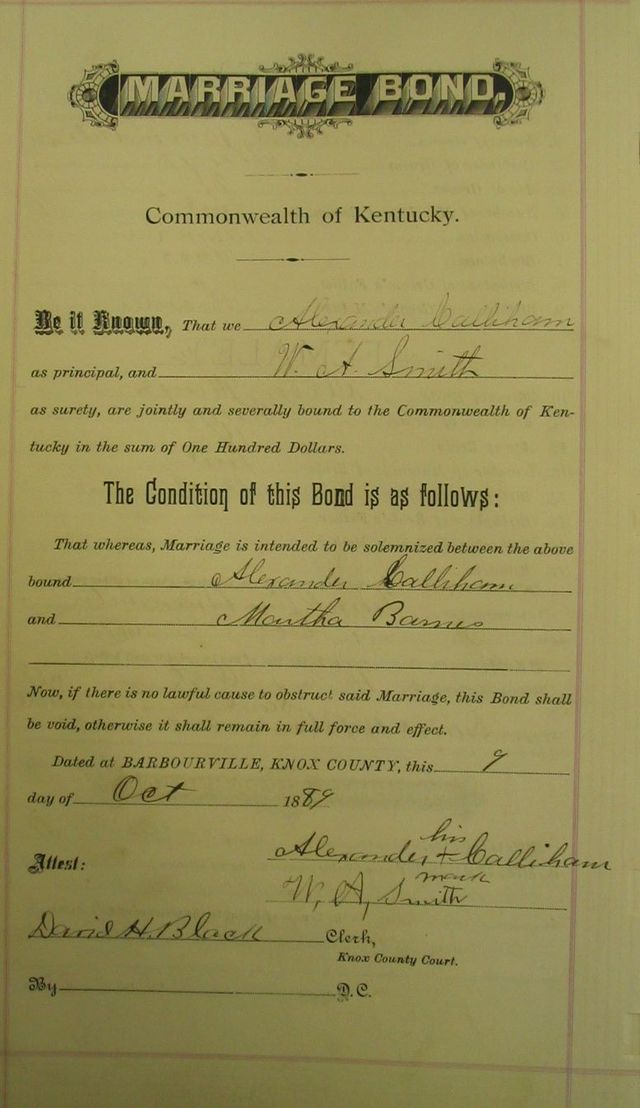 MARRIAGE BOND,
Commonwealth of Kentucky.
Be it Known, That we Alexander Calliham
as principal, and W. A. Smith
as surety, are jointly and severally bound to the Commonwealth of Ken-
tucky in the sum of One Hundred Dollars.
The Condition of this Bond is as follows:
That whereas, Marriage is intended to be solemnized between the above
bound Alexander Calliham
and Martha Barnes
Now, if there is no lawful cause to obstruct said Marriage, this Bond shall
be void, otherwise it shall remain in full force and effect.
Dated at BARBOURVILLE, KNOX COUNTY, this 9
day of Oct 1889
his
Attest: Alexander + Calliham
mark
W, A, Smith
David H. Black Clerk,
Knox County Court.
By D.C.